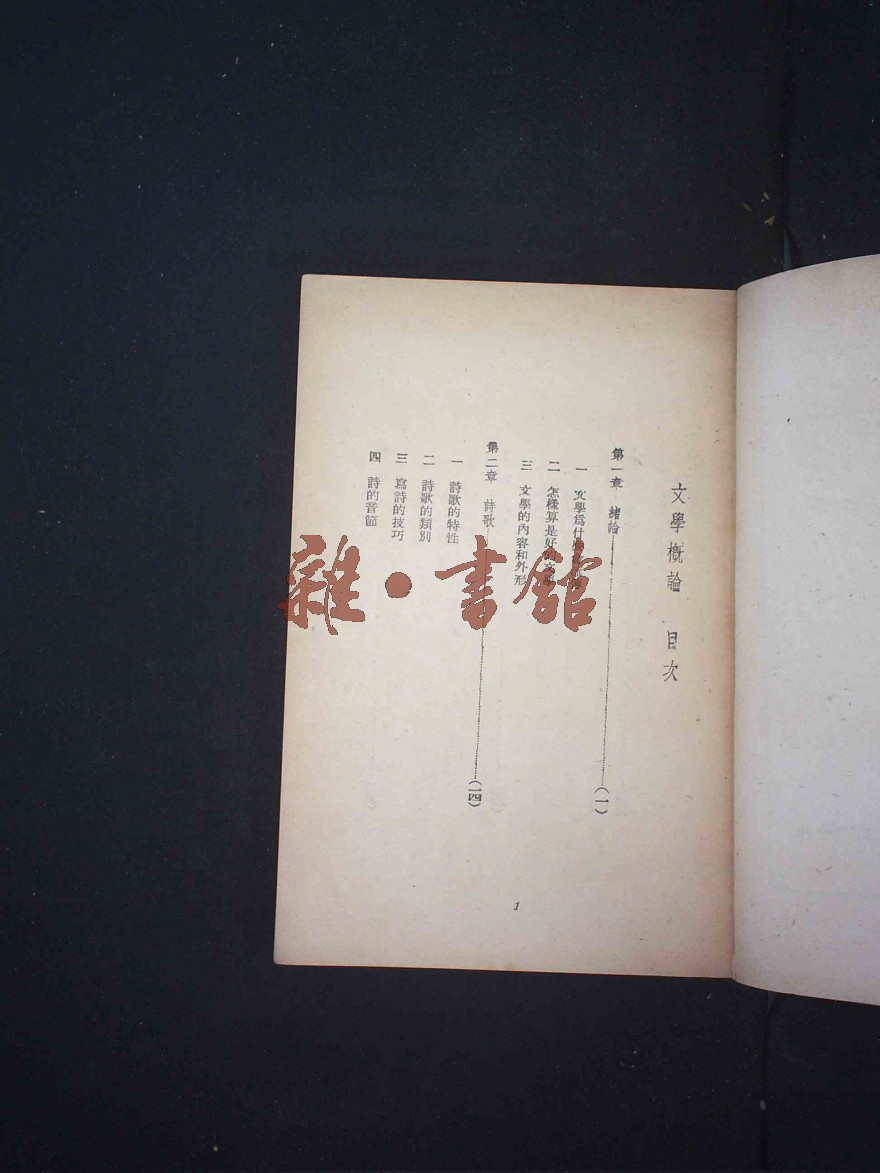 文學概論 目次
第一章 緒論(一)
一 文學爲什
二 怎樣算是好的文學
三 文學的內容和外形
第二章 詩歌(一四)
一 詩歌的特性
二 詩歌的類別
三 寫詩的技巧
四 詩的音節
1
雜·書館